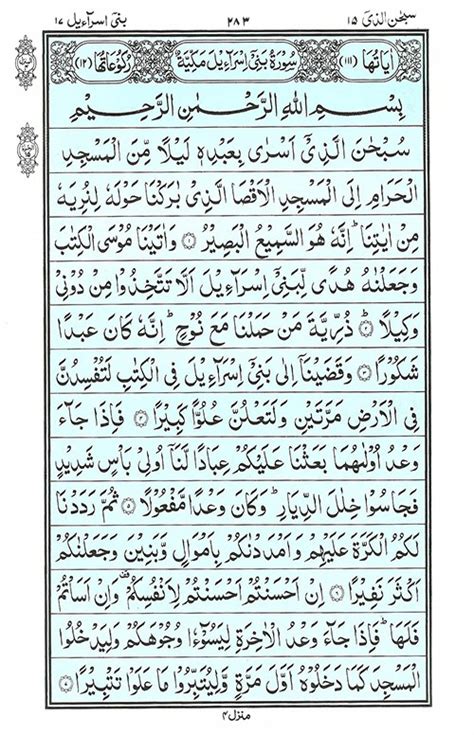 سبحٰن الذی ۱۵ ۲۸۳ بنی اسرآءیل ۱۷
اٰیَاتُهَا (۱۱۱) سُوْرَةُ بَنِیْۤ اِسْرَآءِیْلَ مَكِّیَّةٌ رُكُوْعَاتُهَا (۱۲)
بِسْمِ اللّٰهِ الرَّحْمٰنِ الرَّحِیْمِ
سُبْحٰنَ الَّذِیْۤ اَسْرٰی بِعَبْدِهٖ لَیْلًا مِّنَ الْمَسْجِدِ
الْحَرَامِ اِلَی الْمَسْجِدِ الْاَقْصَا الَّذِیْ بٰرَكْنَا حَوْلَهٗ لِنُرِیَهٗ
مِنْ اٰیٰتِنَا ؕ اِنَّهٗ هُوَ السَّمِیْعُ الْبَصِیْرُ ۝۱ وَاٰتَیْنَا مُوْسَی الْكِتٰبَ
وَجَعَلْنٰهُ هُدًی لِّبَنِیْۤ اِسْرَآءِیْلَ اَلَّا تَتَّخِذُوْا مِنْ دُوْنِیْ
وَكِیْلًا ۝۲ ذُرِّیَّةَ مَنْ حَمَلْنَا مَعَ نُوْحٍ ؕ اِنَّهٗ كَانَ عَبْدًا
شَكُوْرًا ۝۳ وَقَضَیْنَاۤ اِلٰی بَنِیْۤ اِسْرَآءِیْلَ فِی الْكِتٰبِ لَتُفْسِدُنَّ
فِی الْاَرْضِ مَرَّتَیْنِ وَلَتَعْلُنَّ عُلُوًّا كَبِیْرًا ۝۴ فَاِذَا جَآءَ
وَعْدُ اُوْلٰىهُمَا بَعَثْنَا عَلَیْكُمْ عِبَادًا لَّنَاۤ اُولِیْ بَاْسٍ شَدِیْدٍ
فَجَاسُوْا خِلٰلَ الدِّیَارِ ؕ وَكَانَ وَعْدًا مَّفْعُوْلًا ۝۵ ثُمَّ رَدَدْنَا
لَكُمُ الْكَرَّةَ عَلَیْهِمْ وَاَمْدَدْنٰكُمْ بِاَمْوَالٍ وَّبَنِیْنَ وَجَعَلْنٰكُمْ
اَكْثَرَ نَفِیْرًا ۝۶ اِنْ اَحْسَنْتُمْ اَحْسَنْتُمْ لِاَنْفُسِكُمْ ۫ وَاِنْ اَسَاْتُمْ
فَلَهَا ؕ فَاِذَا جَآءَ وَعْدُ الْاٰخِرَةِ لِیَسُوْٓءٗا وُجُوْهَكُمْ وَلِیَدْخُلُوا
الْمَسْجِدَ كَمَا دَخَلُوْهُ اَوَّلَ مَرَّةٍ وَّلِیُتَبِّرُوْا مَا عَلَوْا تَتْبِیْرًا ۝۷
منزل ۴